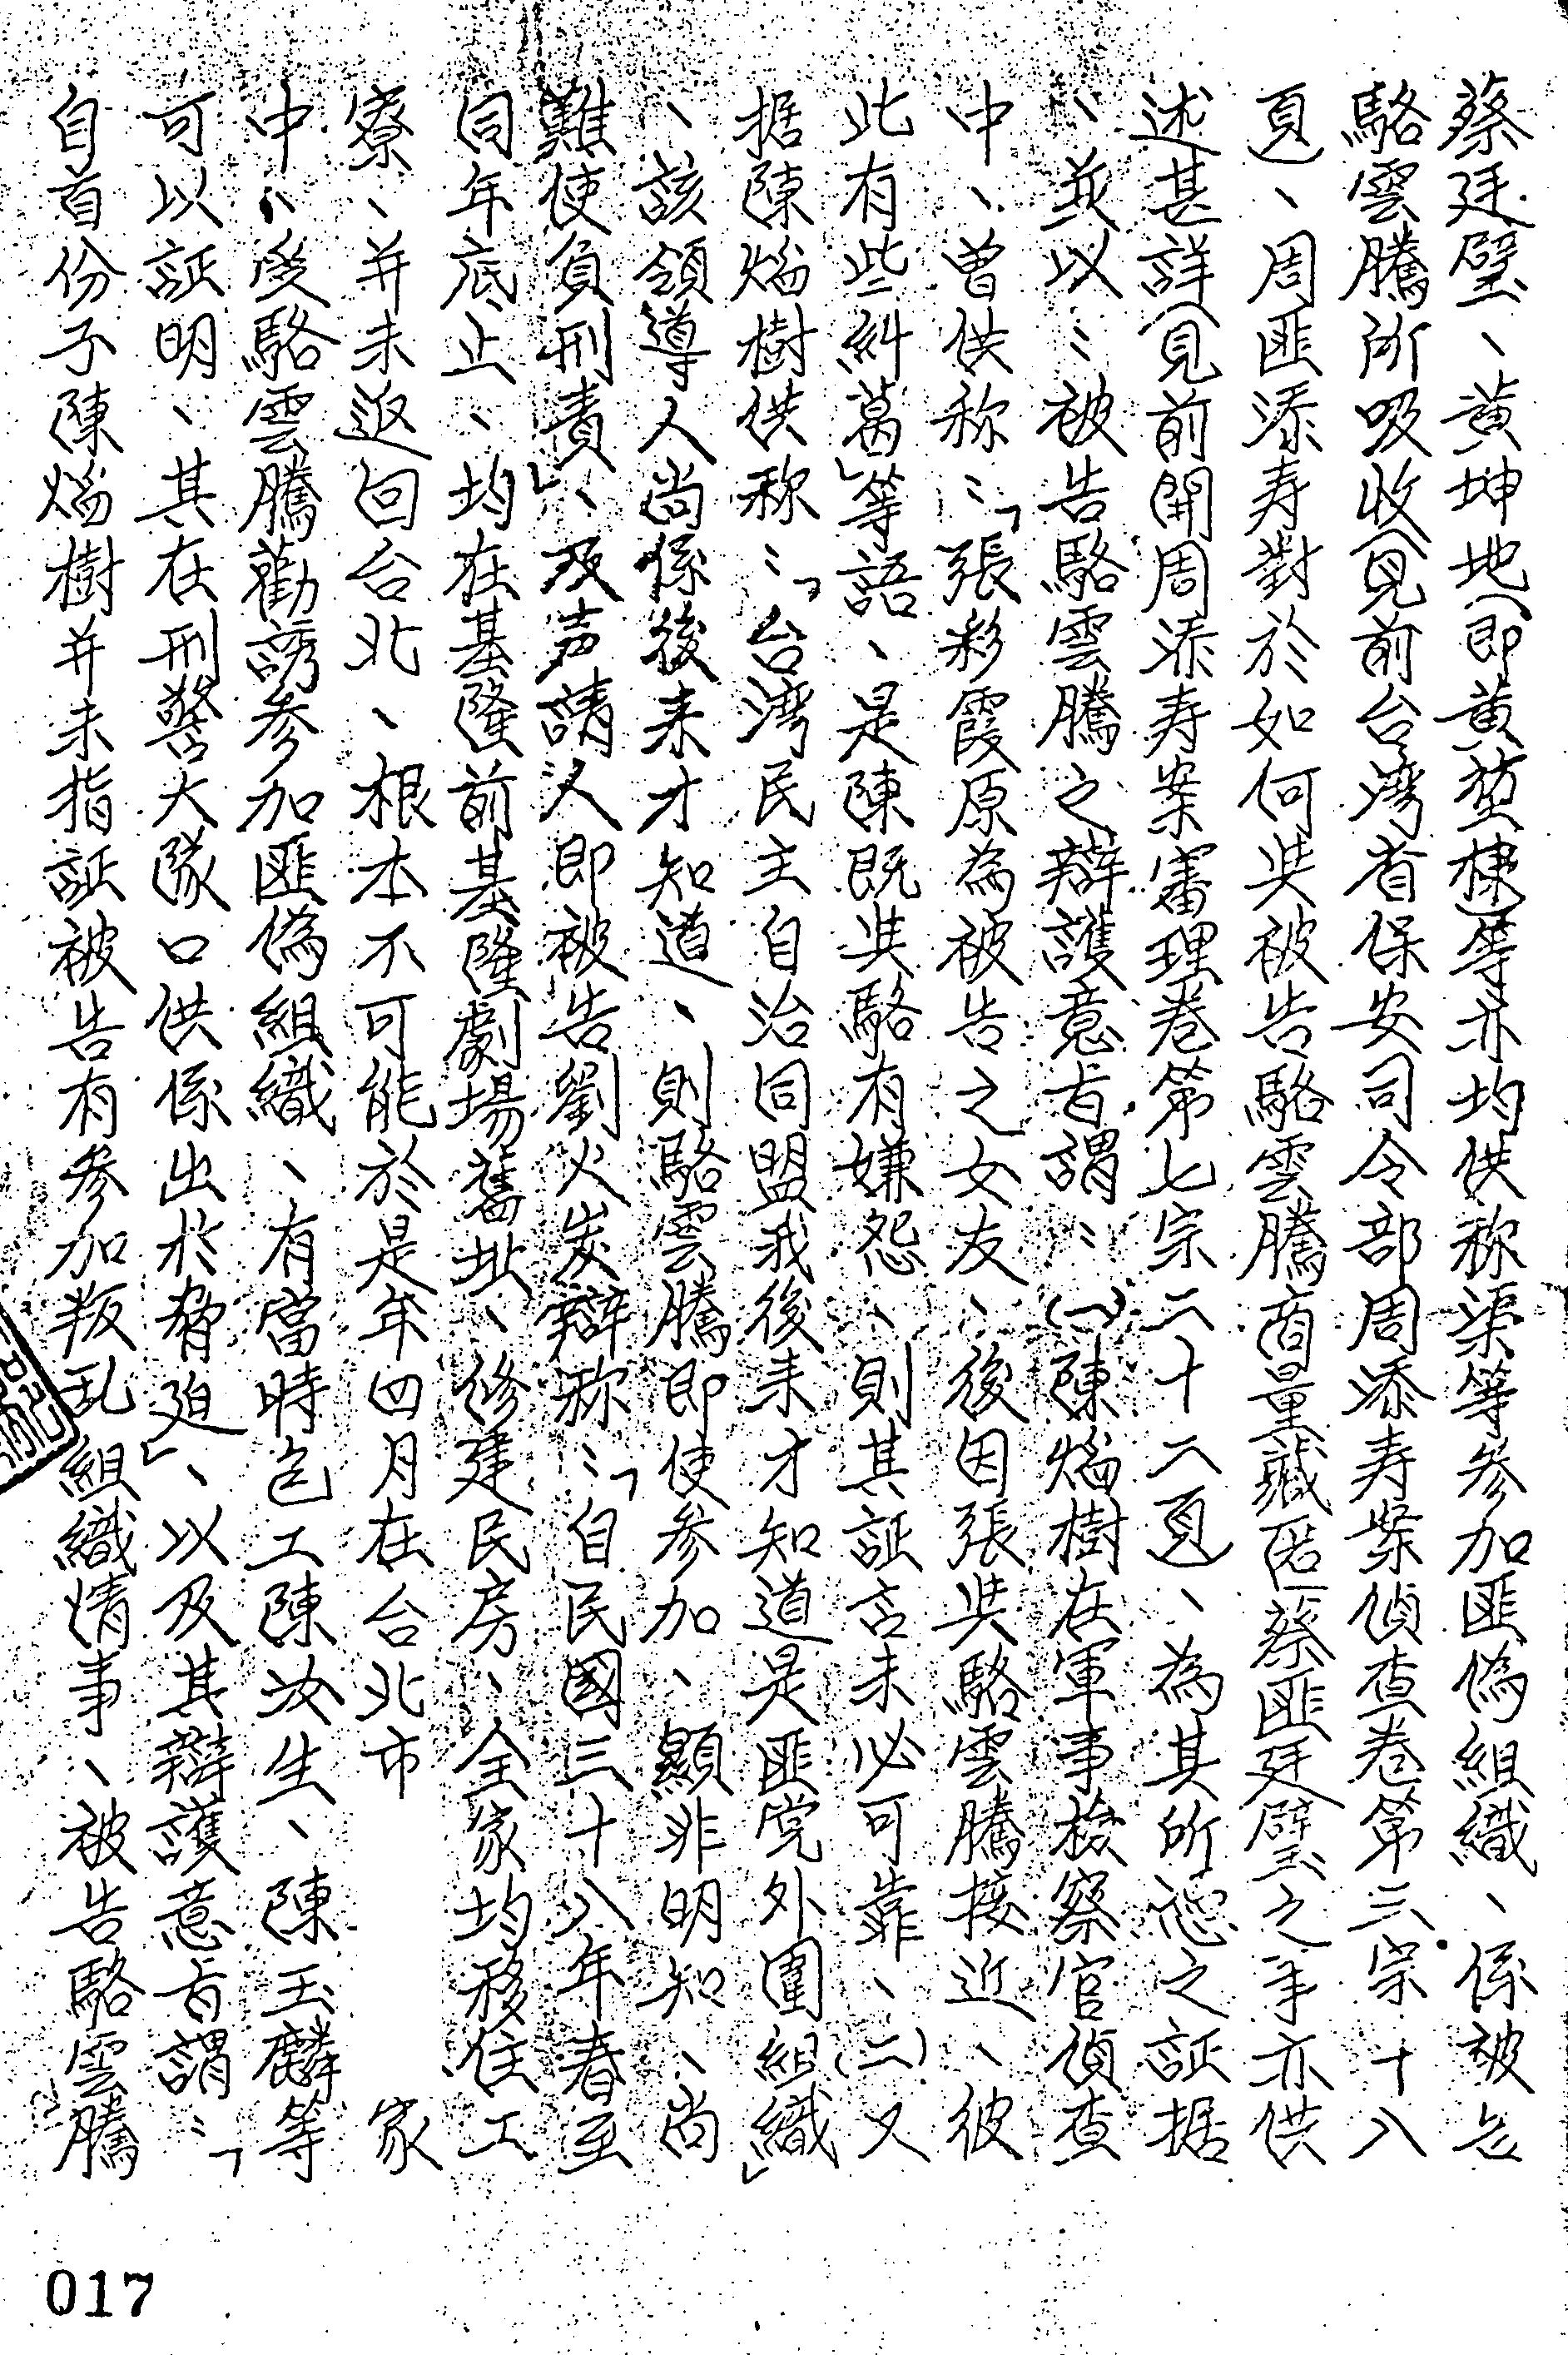 蔡廷璧、黄坤地(即黄堃棣)等亦均供称渠等参加匪偽組織、係被告
駱雲騰所吸收(見前台湾省保安司令部周添寿案偵查卷第三宗十八
頁)、周匪添寿對於如何與被告駱雲騰商量藏匿蔡匪廷璧之事亦供
述甚詳(見前開周添寿案審理卷第七宗二十二頁)、為其所憑之証据
、並以:被告駱雲騰之辯護意旨謂:(一)陳焰樹在軍事检察官偵查
中、曾供称:「張彩霞原為被告之女友、後因張與駱雲騰接近、彼
此有些糾葛」等語、是陳既與駱有嫌怨、則其証言未必可靠、(二)又
据陳焰樹供称:「台湾民主自治同盟我後来才知道是匪党外圍組織」
、該領導人尚係後来才知道、則駱雲騰即使参加、顯非明知、尚
難使負刑責」、及声請人即被告劉火炭辯称:「自民國三十八年春至
同年底止、均在基隆前基隆劇場舊址、修建民房、全家均移住工
寮、并未返回台北、根本不可能於是年四月在台北市　　　　家
中、受駱雲騰勸誘参加匪偽組織、有當時包工陳汝生、陳玉麟等
可以証明、其在刑警大隊口供係出於脅迫」、以及其辯護意旨謂:「
自首份子陳焰樹并未指証被告有参加叛乱組織情事、被告駱雲騰
017